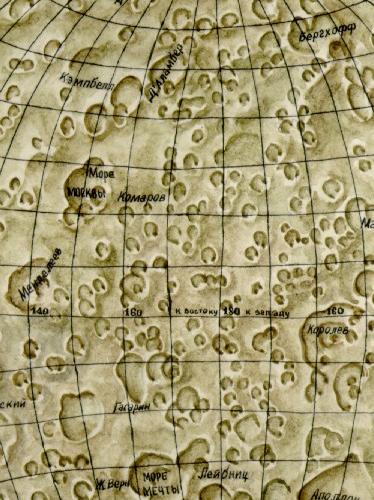 Бергхофф
Д'Аламбер
Кэмпбелл
Море
Москвы
Комаров
Менделеев
140
160
к востоку 180 к западу
160
Королев
ский
Гагарин
Ж. Верн
МОРЕ
МЕЧТЫ
Лейбниц
Аполлон